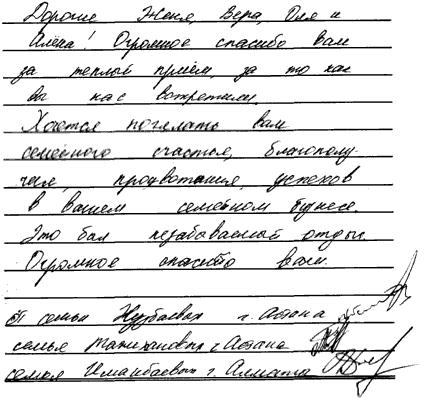 Дорогие Женя, Вера, Оля и
Алёна! Огромное спасибо вам
за теплый приём, за то как
вы нас встретили.
Хочется пожелать вам
семейного счастья, благополу-
чия, процветания, успехов
в вашем семейном бизнесе.
Это был незабываемый отдых.
Огромное спасибо вам.
От семьи г. Астана
семья г. Астана
семья Иманбаевых г. Алматы